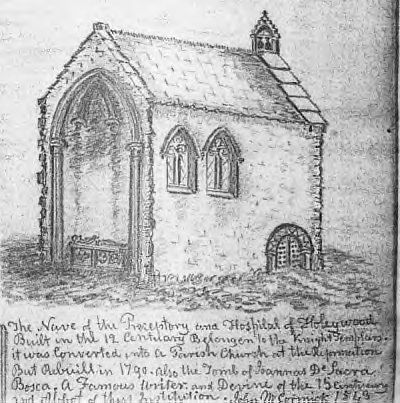 The Nave of the Preceptory and Hospital of Holeywood
Built in the 12 Centuary Belongen to the Knight Templars.
it was Converted into A Parish Church at the Reformation
But Rebuilt in 1790. Also the Tomb of Joannas De Sacra
Bosca. A Famous Writer and Devine of the 13 Centuary
and Abbot of this Institution. John McCormick 1843